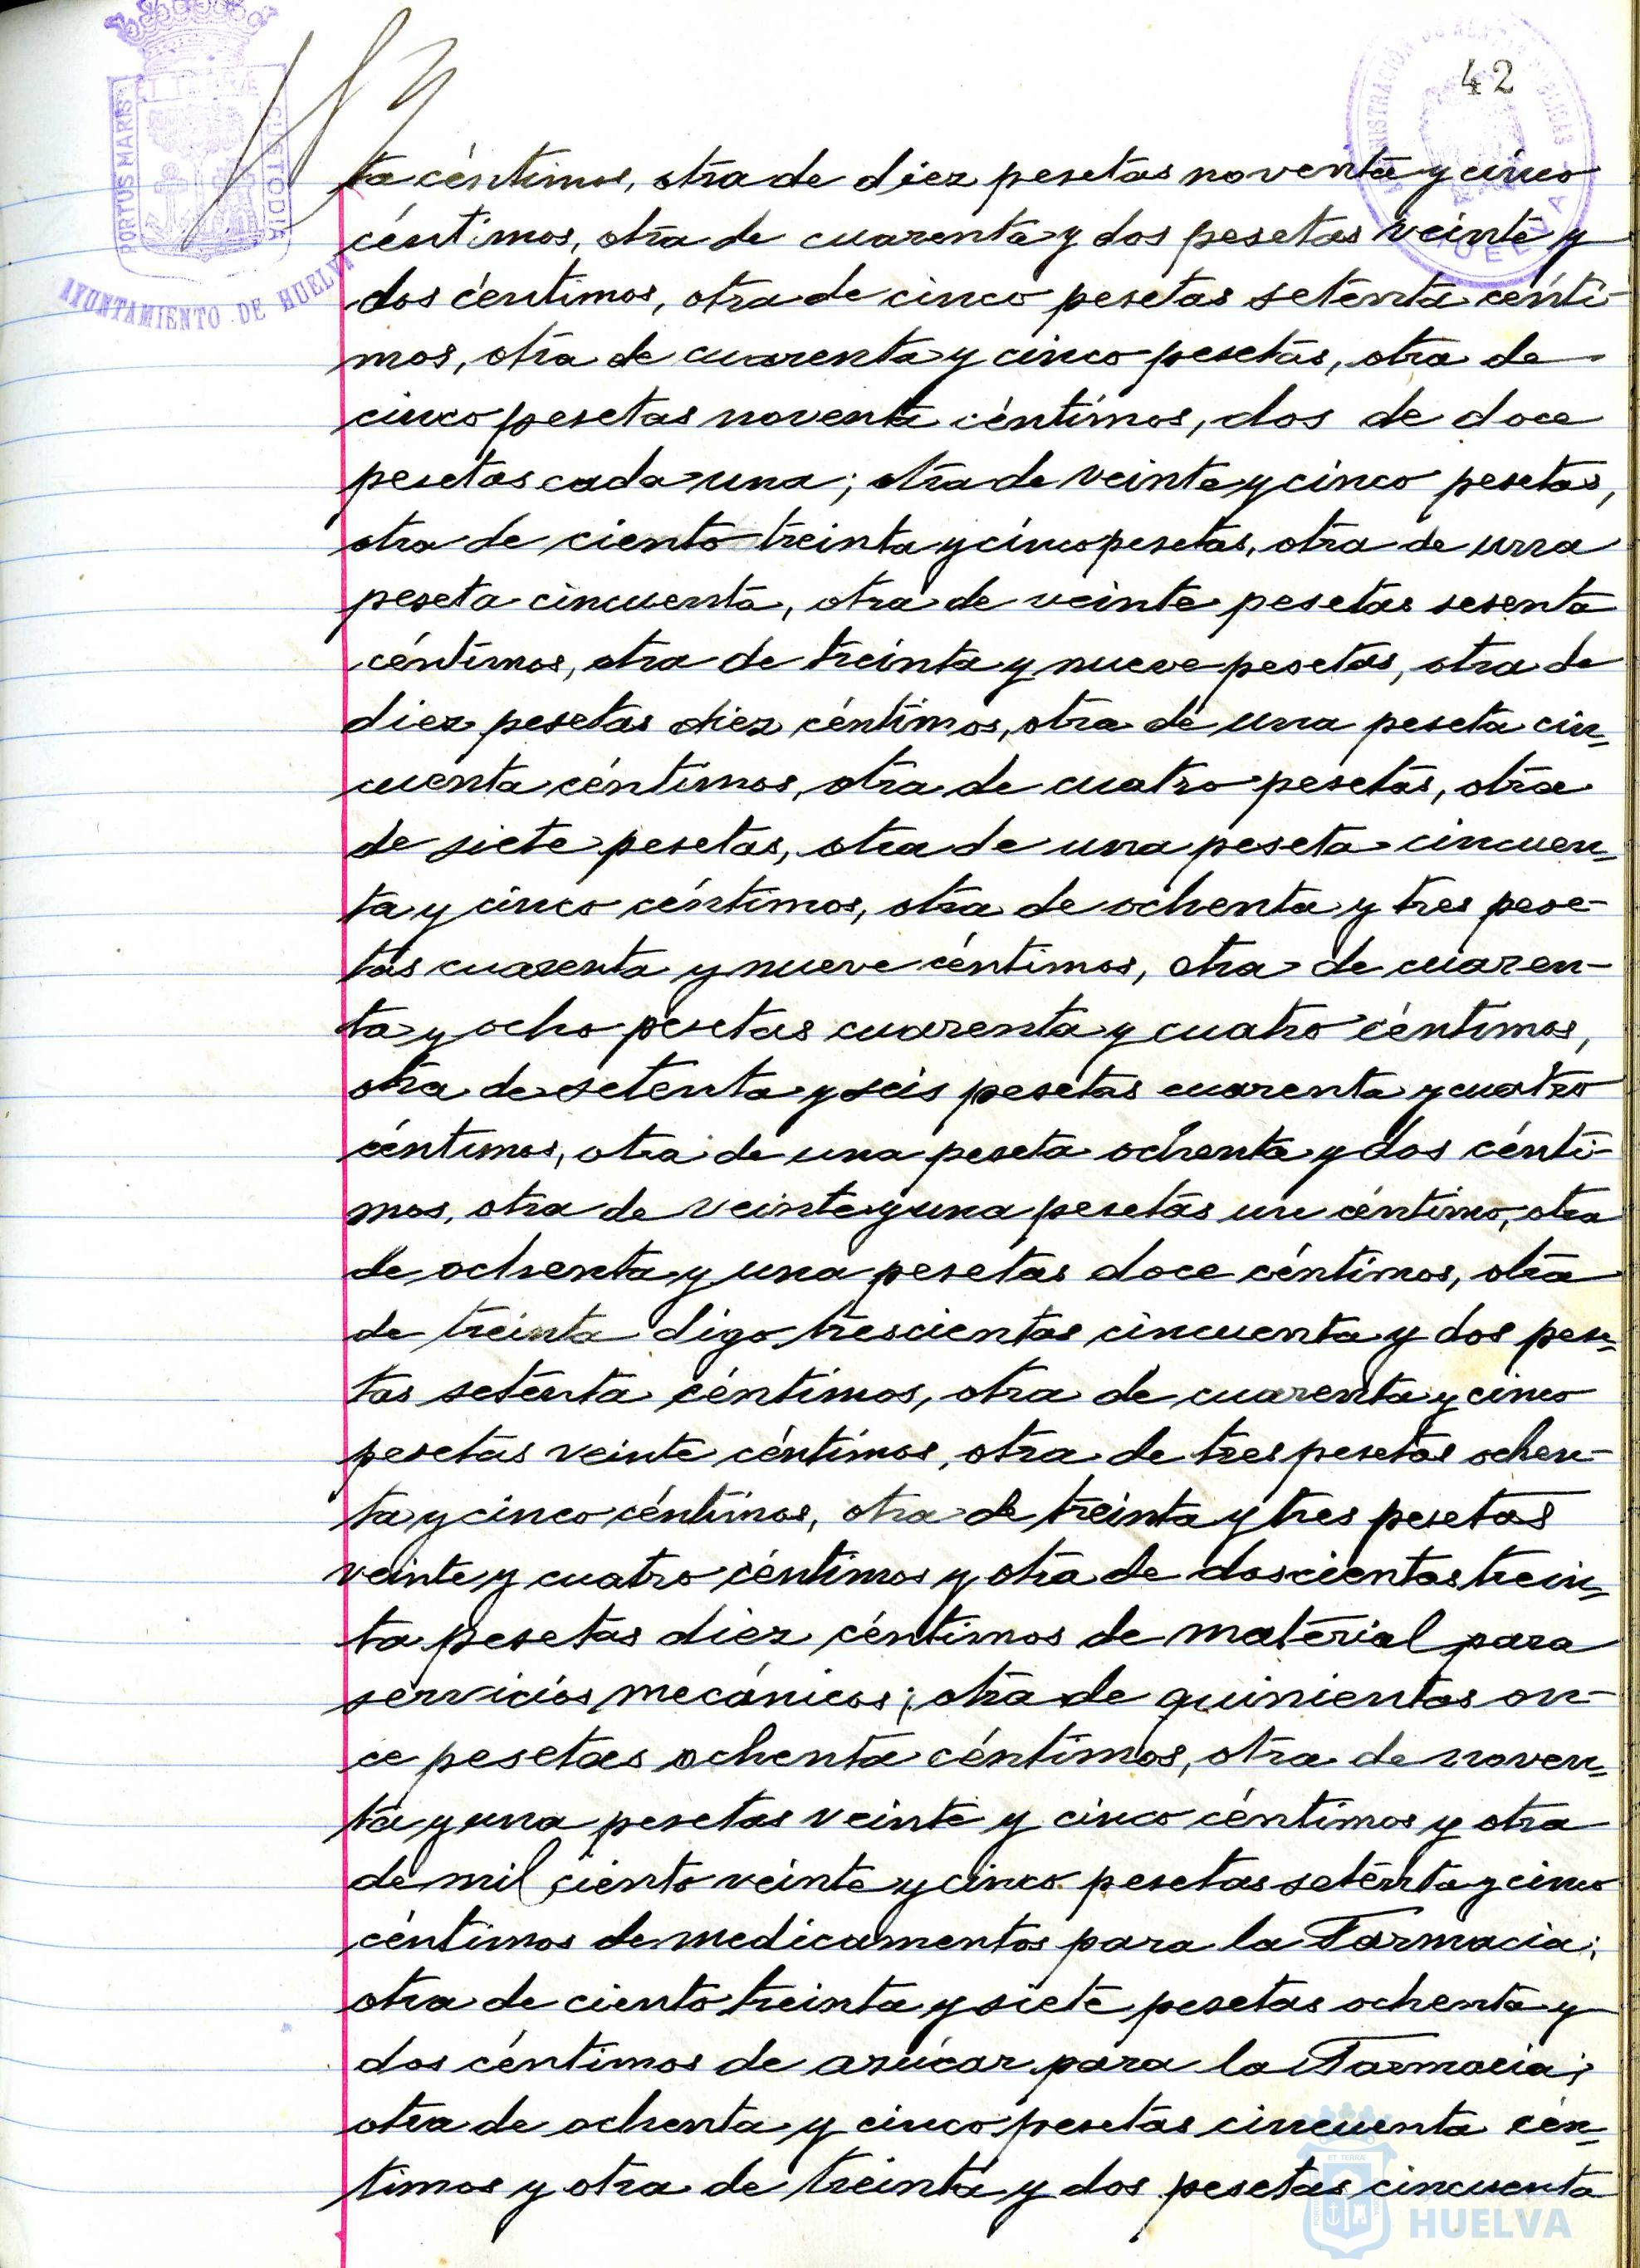 42
PORTUS MARIS
ET TERRÆ
CUSTODIA
AYUNTAMIENTO DE HUELVA
HUELVA
ta céntimos, otra de diez pesetas noventa y cinco
céntimos, otra de cuarenta y dos pesetas veinte y
dos céntimos, otra de cinco pesetas setenta cénti-
mos, otra de cuarenta y cinco pesetas, otra de
cinco pesetas noventa céntimos, dos de doce
pesetas cada una; otra de veinte y cinco pesetas,
otra de ciento treinta y cinco pesetas, otra de una
peseta cincuenta, otra de veinte pesetas sesenta
céntimos, otra de treinta y nueve pesetas, otra de
diez pesetas diez céntimos, otra de una peseta cin-
cuenta céntimos, otra de cuatro pesetas, otra
de siete pesetas, otra de una peseta cincuen-
ta y cinco céntimos, otra de ochenta y tres pese-
tas cuarenta y nueve céntimos, otra de cuaren-
ta y ocho pesetas cuarenta y cuatro céntimos,
otra de setenta y seis pesetas cuarenta y cuatro
céntimos, otra de una peseta ochenta y dos cénti-
mos, otra de veinte y una pesetas un céntimo, otra
de ochenta y una pesetas doce céntimos, otra
de treinta digo trescientas cincuenta y dos pese-
tas setenta céntimos, otra de cuarenta y cinco
pesetas veinte céntimos, otra de tres pesetas ochen-
ta y cinco céntimos, otra de treinta y tres pesetas
veinte y cuatro céntimos y otra de doscientas trein-
ta pesetas diez céntimos de material para
servicios mecánicos; otra de quinientas on-
ce pesetas ochenta céntimos, otra de noven-
ta y una pesetas veinte y cinco céntimos y otra
de mil ciento veinte y cinco pesetas setenta y cinco
céntimos de medicamentos para la Farmacia;
otra de ciento treinta y siete pesetas ochenta y
dos céntimos de azúcar para la Farmacia;
otra de ochenta y cinco pesetas cincuenta cén-
timos y otra de treinta y dos pesetas cincuenta
HUELVA